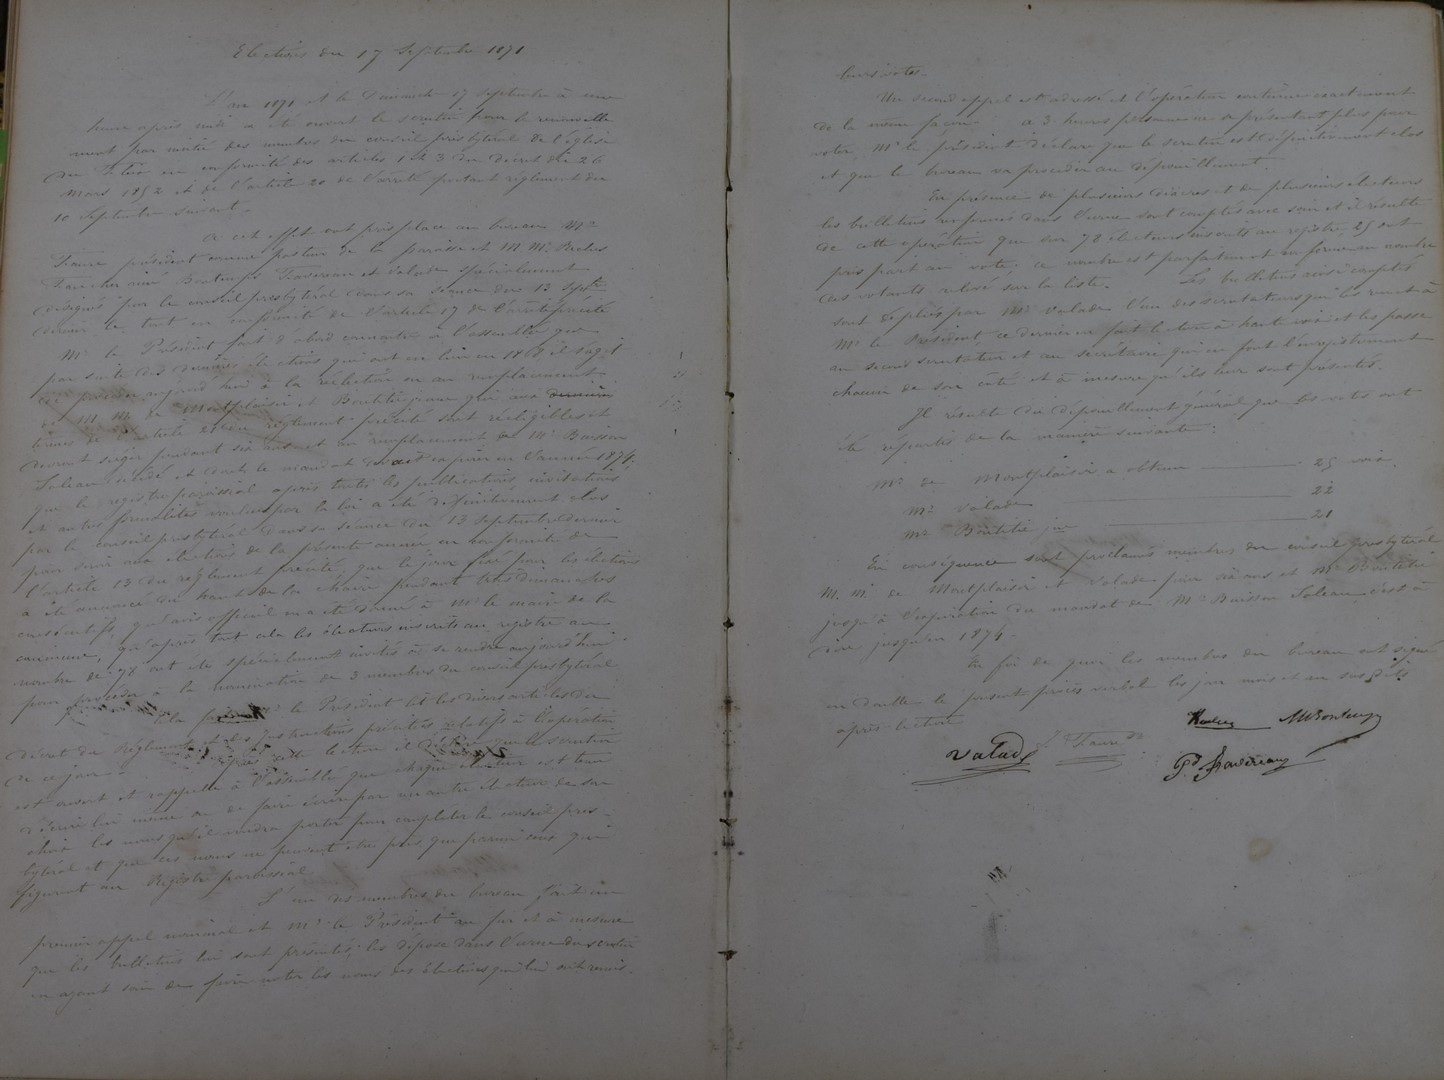 Elections du 17 Septembre 1871
L'an 1871 et le Dimanche 17 Septembre à une
heure après midi a été ouvert le scrutin pour le renouvelle
ment par moitié des membres du conseil presbytéral de l'église
du en conformité des articles 1 et 3 du Décret du 26
Mars 1852 et de l'article 20 de l'arrêté portant règlement du
10 Septembre suivant.
A cet effet ont pris place au bureau Mr
président comme pasteur de la paroisse et M. Mrs
ainé Bontemps Travereau et Valade spécialement
désignés par le conseil presbytéral dans sa séance du 13 Sptbre
dernier le tout en conformité de l'article 17 de l'arrêté précité
Mr le Président fait d'abord connaitre à l'assemblée que
par suite des dernières élections qui ont eu lieu en 1868 il s'agit
de procéder aujourd'hui à la réélection ou au remplacement
de M. M. de Montplaisir et Boutitié jeune qui aux derniers
termes de l'article du règlement précité sont rééligibles et
devront siéger pendant six ans et au remplacement de Mr Buisson
Soleau décédé et dont le mandat devait expirer en l'année 1874.
que le registre paroissial après toutes les publications invitations
et autres formalités voulues par la loi a été définitivement clos
par le conseil presbytéral dans sa séance du 13 Septembre dernier
pour servir aux élections de la présente année en conformité de
l'article 13 du règlement précité, que le jour fixé pour les élections
a été annoncé du haut de la chaire pendant trois dimanches
consécutifs, qu'avis officiel en a été donné à Mr le maire de la
commune, qu'après tout cela les électeurs inscrits au registre au
nombre de 78 ont été spécialement invités à se rendre aujourd'hui
pour procéder à la nomination de 3 membres du conseil presbytéral
le Président lit les divers articles du
décret du Règlement et des Instructions précités relatifs à l'opération
de ce jour. Après cette lecture il déclare que le scrutin
est ouvert et rappelle à l'assemblée que chaque électeur est tenu
d'écrire lui même ou de faire écrire par un autre électeur de son
choix les noms qu'il voudra porter pour compléter le conseil pres-
bytéral et que ces noms ne peuvent être pris que parmi ceux qui
figurent au Registre paroissial
L'un des membres du bureau fait un
premier appel nominal et Mr le Président au fur et à mesure
que les bulletins lui sont présentés, les dépose dans l'urne du scrutin
en ayant soin de faire noter les noms des Electeurs qui lui ont remis
leurs votes.
Un second appel est adressé et l'opération continue exactement
de la même façon. A 3 heures personne ne se présentant plus pour
voter Mr le président déclare que le scrutin est définitivement clos
et que le bureau va procéder au dépouillement.
En présence de plusieurs diacres et de plusieurs électeurs
les bulletins renfermés dans l'urne sont comptés avec soin et il résulte
de cette opération que sur 78 électeurs inscrits au registre 25 ont
pris part au vote; ce nombre est parfaitement conforme au nombre
des votants relevé sur la liste. Les bulletins ainsi comptés
sont dépliés par Mr Valade l'un des scrutateurs qui les remet à
Mr le Président, ce dernier en fait lecture à haute voix et les passe
au second scrutateur et au secrétaire qui en font l'enregistrement
chacun de son côté et à mesure qu'ils leur sont présentés.
Il résulte du dépouillement général que les votes ont
été répartis de la manière suivante:
Mr de Montplaisir a obtenu 25 voix
Mr Valade 22
Mr Boutitié jne 21
En conséquence sont proclamés membres du conseil presbytéral
M. M. de Montplaisir et Valade pour six ans et Mr Boutitié
jusqu'à l'expiration du mandat de Mr Buisson Soleau, c'est à
dire jusqu'en 1874.
En foi de quoi les membres du bureau ont signé
en double le présent procès verbal les jour mois et an susdits
après lecture
Valade
Travereau